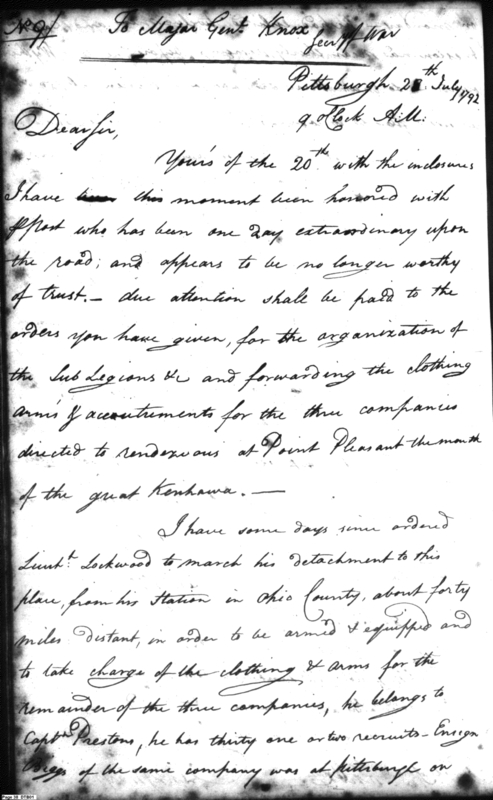 To Majar Genl. Knox Secy of War
Pittsburgh 2 th July 1792
9 oClock A.M:
Dear Sir,
Your's of the 20th with the inclosures
I have this moment been honored with
Post who has been one day extraordinary upon
the road; and appears to be no longer worthy
of trust. — due attention shall be paid to the
orders you have given, for the organization of
the Sub Legions &c and forwarding the clothing
arms & accoutrements for the three companies
directed to rendezvous at Point Pleasant the mouth
of the great Kenhawa. —
I have some days since ordered
Lieut. Lockwood to march his detachment to this
place, from his Station in Ohio County, about forty
miles distant, in order to be armed & equipped and
to take charge of the clothing & arms for the
remainder of the three companies, he belongs to
Captn Prestons, he has thirty one or two recruits – Ensign
of the same company was at pittsburgh on